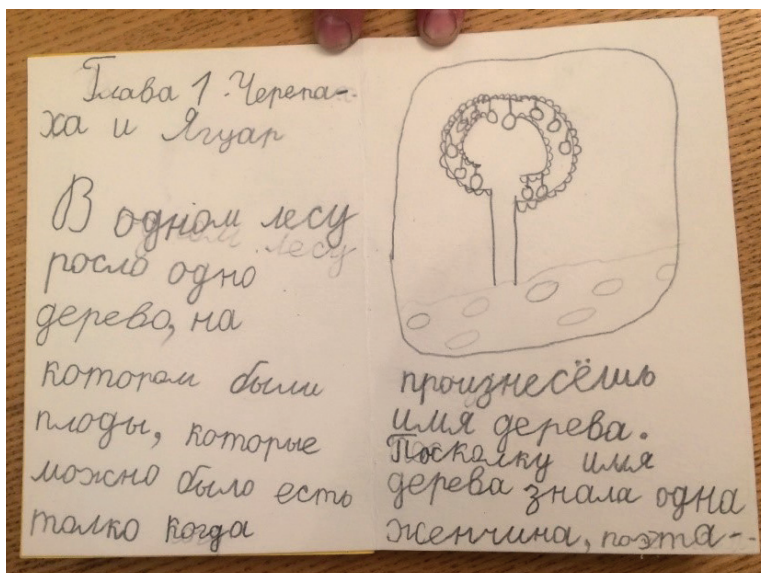 Глава 1. Черепа-
ха и Ягуар
В одном лесу
росло одно
дерево, на
котором были
плоды, которые
можно было есть
толко когда
произнесёшь
имя дерева.
Посколку имя
дерева знала одна
женчина, поэта-